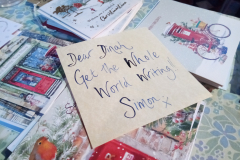 Dear Dinah,
Get the Whole
World Writing!
Simon x